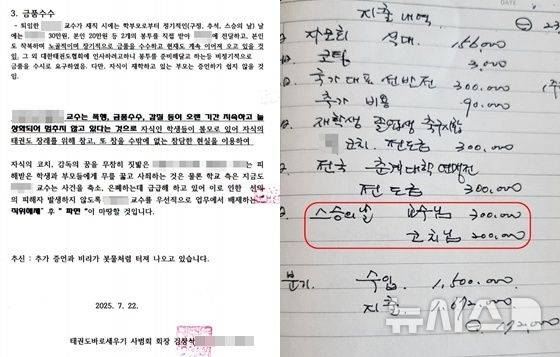 3. 금품수수
- 퇴임한 교수가 재직 시에는 학부모로부터 정기적인(구정, 추석, 스승의 날) 날
에는 30만원, 본인 20만원 등 2개의 봉투를 직접 받아 에 전달하고, 본인
도 착복하며 노골적이며 장기적으로 금품을 수수하고 현재도 계속 이어져 오고 있을 것
임. 그 외 대한태권도협회에 인사하러가니 봉투를 준비해달라고 하는등 비정기적으로
금품을 수시로 요구하였음. 다만, 자식이 재학하고 있는 부모는 증언하기 쉽지 않을 것
임.
교수는 폭행, 금품수수, 갑질 등이 오랜 기간 지속하고 늘
상화되어 멈추지 않고 있다는 것으로 자식인 학생들이 볼모로 있어 자식의
태권도 장래를 위해 참고, 또 참을 수밖에 없는 참담한 현실을 이용하여
자식의 코치, 감독의 꿈을 무참히 짓밟은 는 피
해받은 학생과 부모들에게 무릎 꿇고 사죄하는 것은 물론 학교 측은 지금도
교수는 사건을 축소, 은폐하는데 급급해 하고 있어 이로 인한 선의
의 피해자 발생하지 않도록 교수를 우선적으로 업무에서 배제하는
직위해제' 후 " 파면 "이 마땅할 것입니다.
추신 : 추가 증언과 비리가 봇물처럼 터져 나오고 있습니다.
2025. 7. 22.
태권도바로세우기 사범회 회장 김창식
지출 내역
자모회 식대 156,000
코팅 3,000
국가대표 선발전 300,000
추가 비용 90,000
재학생 졸업생 축구시합
코치 전도금 300,000
전국 춘계대학연맹전
전도금 300,000
스승의날 교수님 300,000
코치님 200,000
분기 수입 1,600,000
지출 1,692,000
뉴시스